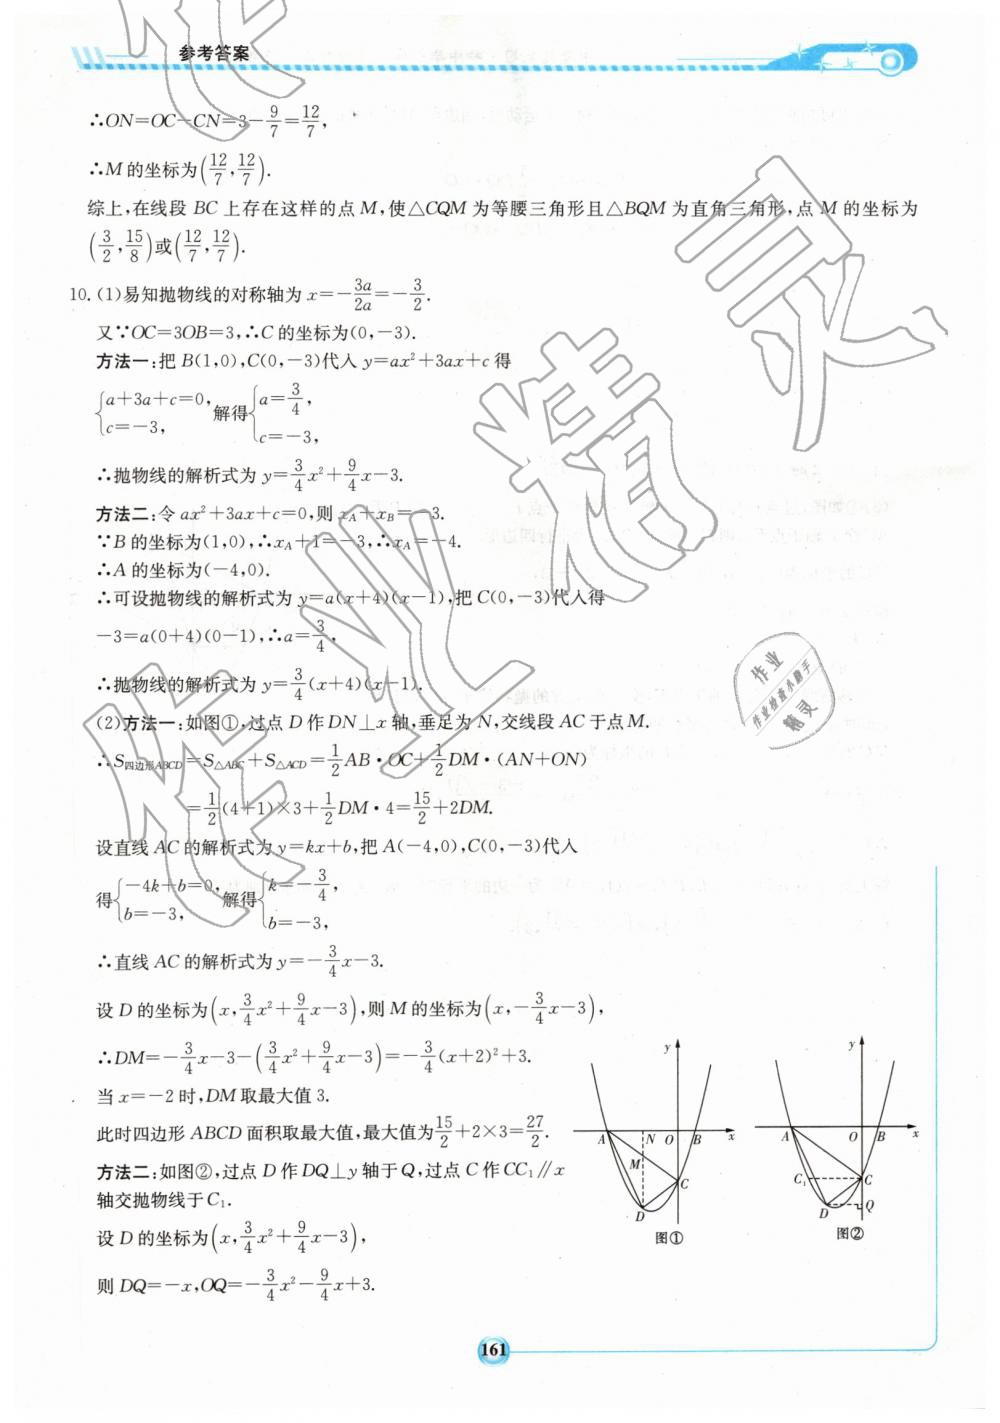 参考答案
∴ON=OC-CN=3-9/7=12/7,
∴M的坐标为(12/7,12/7).
综上,在线段BC上存在这样的点M,使△CQM为等腰三角形且△BQM为直角三角形,点M的坐标为
(3/2,15/8)或(12/7,12/7).
10.(1)易知抛物线的对称轴为x=-3a/2a=-3/2.
又∵OC=3OB=3,∴C的坐标为(0,-3).
方法一:把B(1,0),C(0,-3)代入y=ax²+3ax+c得
{a+3a+c=0, c=-3, 解得{a=3/4, c=-3,
∴抛物线的解析式为y=3/4x²+9/4x-3.
方法二:令ax²+3ax+c=0,则x_A+x_B=-3.
∵B的坐标为(1,0),∴x_A+1=-3,∴x_A=-4.
∴A的坐标为(-4,0).
∴可设抛物线的解析式为y=a(x+4)(x-1),把C(0,-3)代入得
-3=a(0+4)(0-1),∴a=3/4,
∴抛物线的解析式为y=3/4(x+4)(x-1).
(2)方法一:如图①,过点D作DN⊥x轴,垂足为N,交线段AC于点M.
∴S四边形ABCD=S△ABC+S△ACD=1/2AB·OC+1/2DM·(AN+ON)
=1/2(4+1)×3+1/2DM·4=15/2+2DM.
设直线AC的解析式为y=kx+b,把A(-4,0),C(0,-3)代入
得{-4k+b=0, b=-3, 解得{k=-3/4, b=-3,
∴直线AC的解析式为y=-3/4x-3.
设D的坐标为(x,3/4x²+9/4x-3),则M的坐标为(x,-3/4x-3),
∴DM=-3/4x-3-(3/4x²+9/4x-3)=-3/4(x+2)²+3.
当x=-2时,DM取最大值3.
此时四边形ABCD面积取最大值,最大值为15/2+2×3=27/2.
方法二:如图②,过点D作DQ⊥y轴于Q,过点C作CC₁∥x
轴交抛物线于C₁.
设D的坐标为(x,3/4x²+9/4x-3),
则DQ=-x,OQ=-3/4x²-9/4x+3.
y
A N O B x
M
C
D
图①
y
A O B x
C₁ C
D Q
图②
161
作业精灵
作业
作业检查小助手
精灵